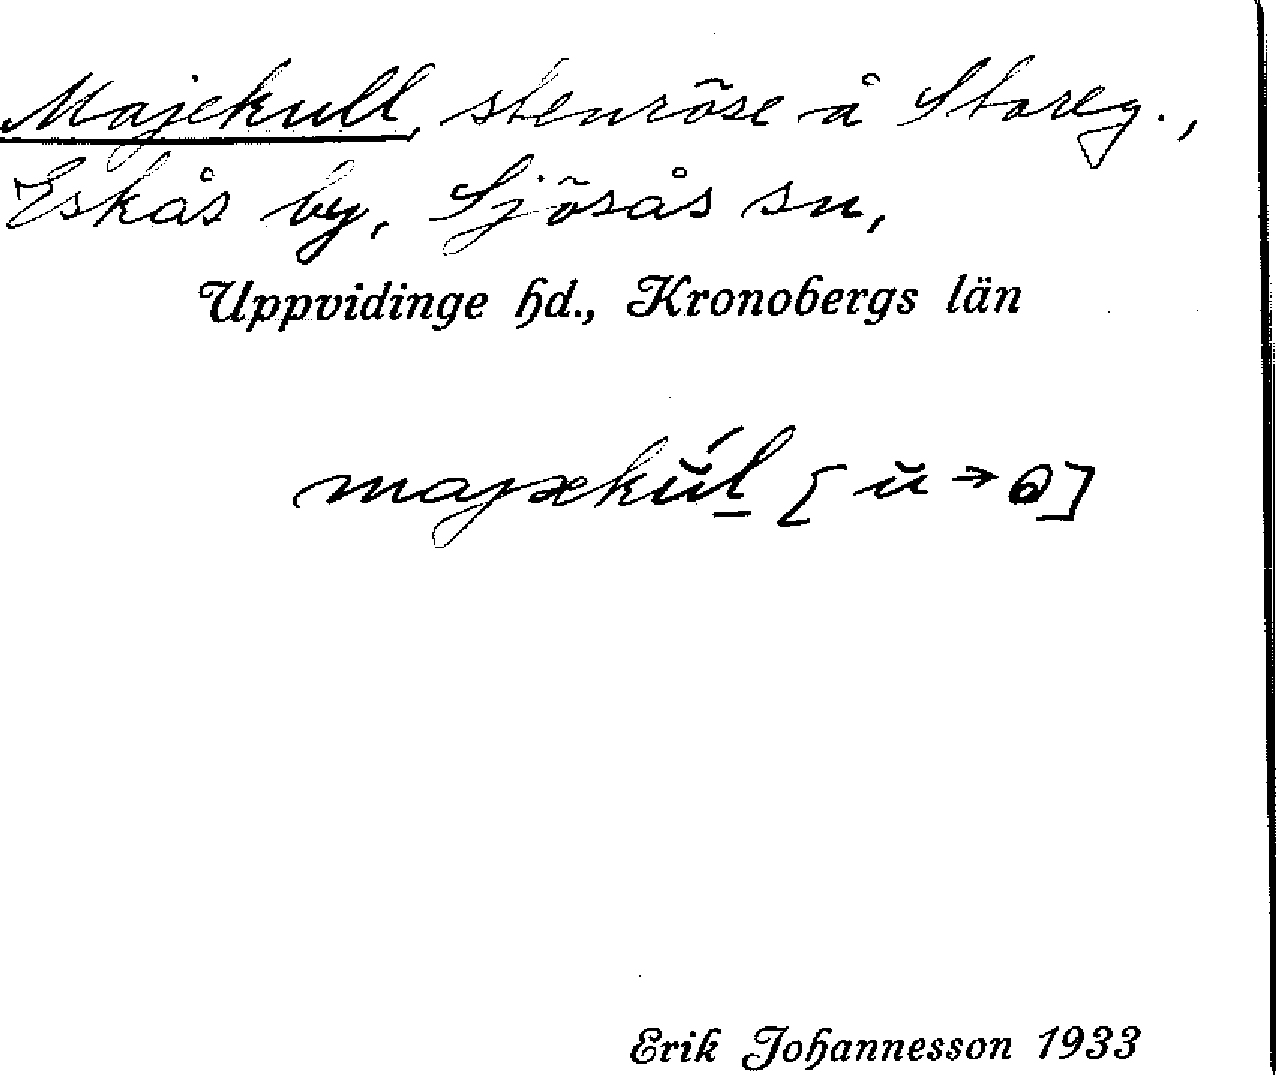 Majekull, stenröse å Storeg.,
Eskås by, Sjösås sn,
Uppvidinge hd., Kronobergs län
majækŭ́l [ŭ → ɷ]
Erik Johannesson 1933